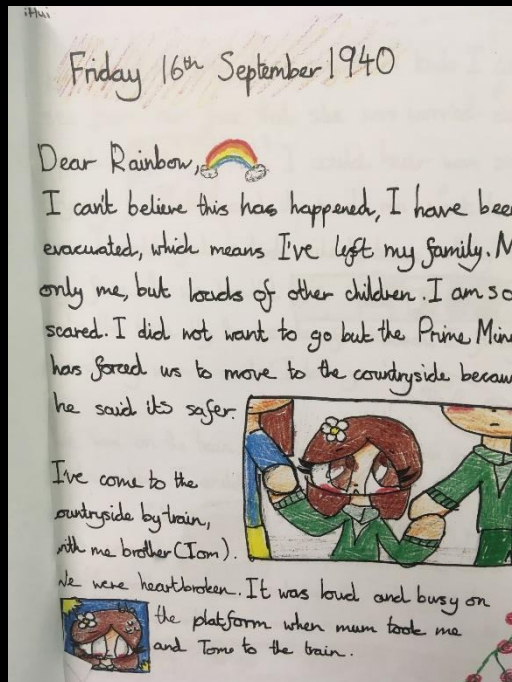 Friday 16th September 1940
Dear Rainbow,
I can't believe this has happened, I have bee
evacuated, which means I've left my family. N
only me, but loads of other children. I am so
scared. I did not want to go but the Prime Min
has forced us to move to the countryside becau
he said its safer.
I've come to the
ountryside by train,
ith me brother (Tom).
We were heartbroken. It was loud and busy on
the platform when mum took me
and Tom to the train.